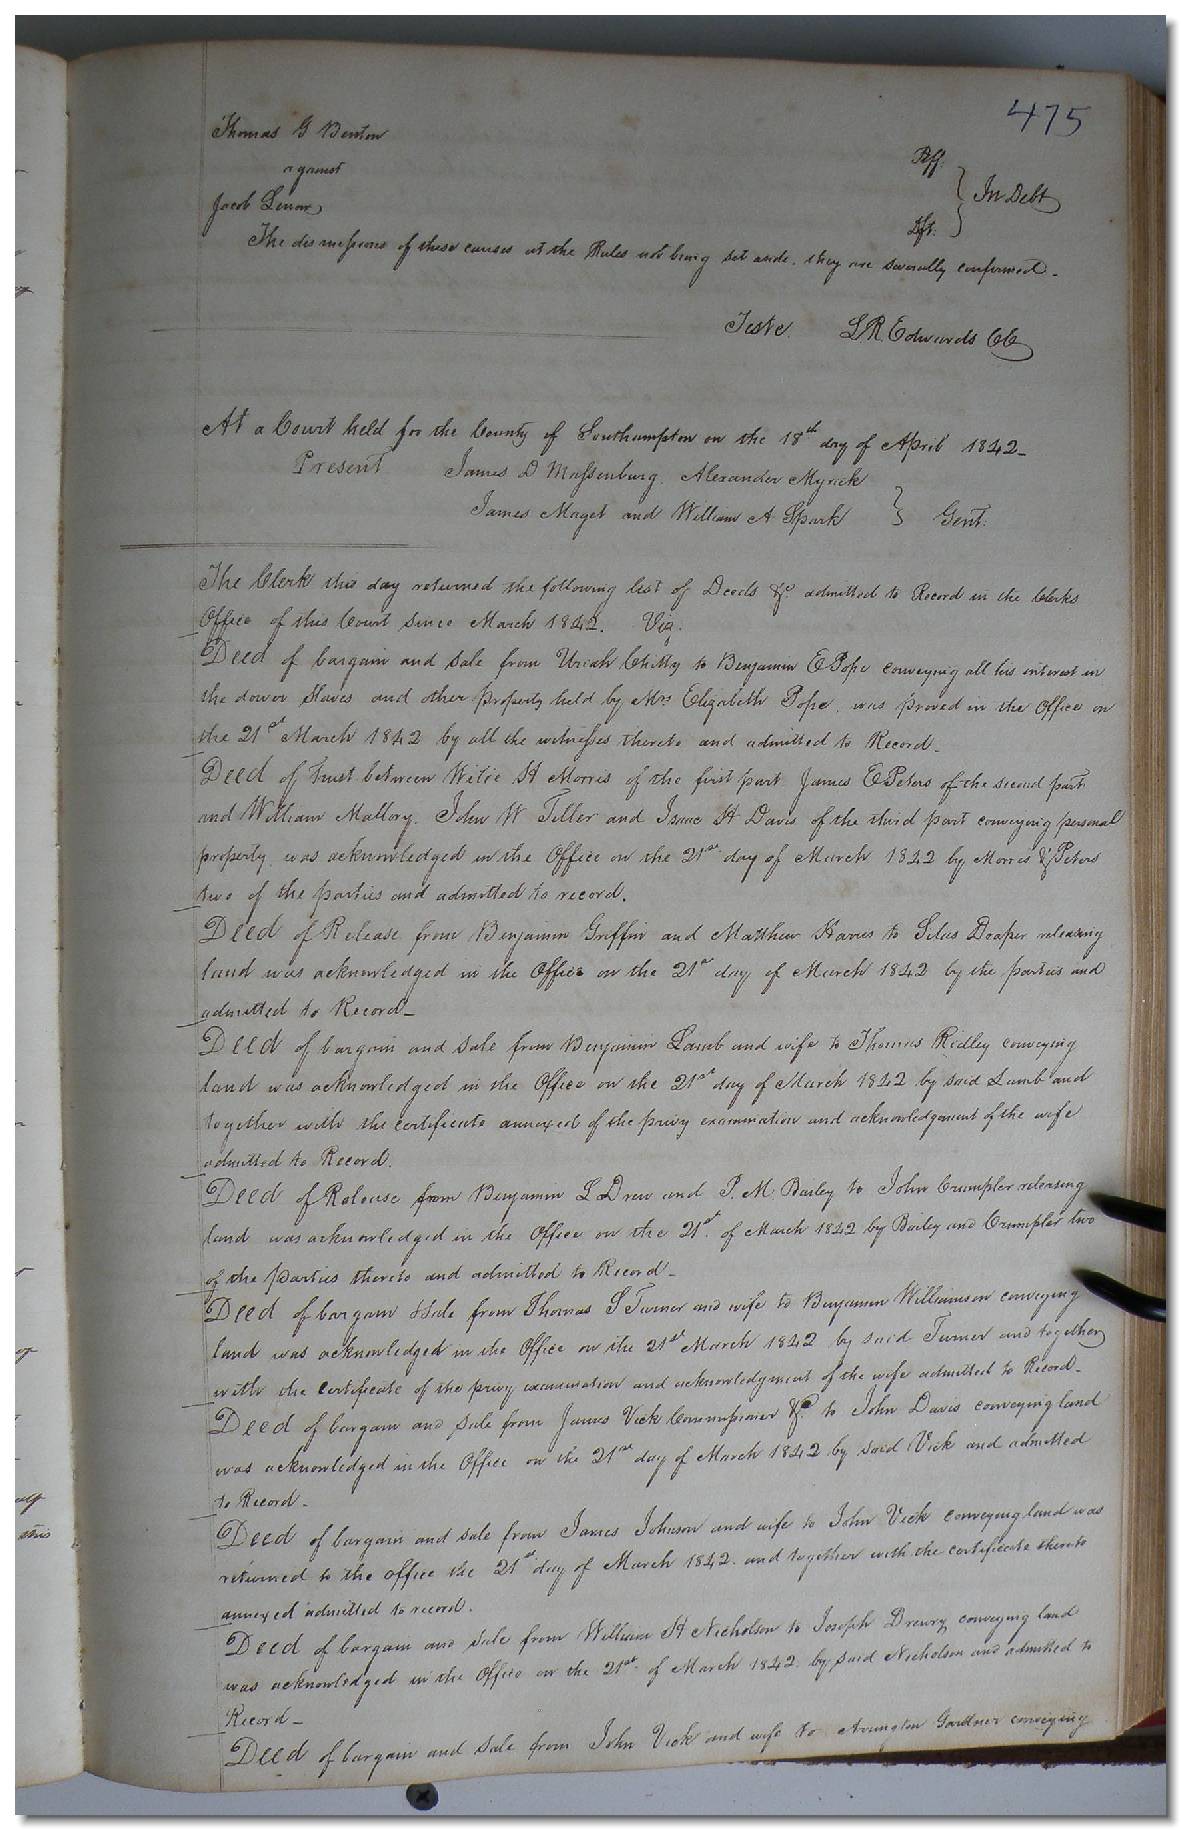 475
Thomas G Benton Plff.
against } In Debt
Jacob Lenow Dft.
The dismissions of these causes at the Rules not being set aside, they are severally confirmed.
Teste. L R. Edwards CC
At a Court held for the County of Southampton on the 18th day of April 1842
Present James D Massenburg, Alexander Myrick
James Maget and William A Spark } Gent:
The Clerk this day returned the following list of Deeds &c admitted to Record in the Clerks
Office of this Court since March 1842. Viz.
Deed of bargain and sale from Uriah Chitty to Benjamin E Pope conveying all his interest in
the dower slaves and other property held by Mrs Elizabeth Pope, was proved in the Office on
the 21st March 1842 by all the witnesses thereto and admitted to Record.
Deed of trust between H Morris of the first part James E Peters of the second part
and William Mallory, John W Teller and Isaac H Davis of the third part conveying personal
property was acknowledged in the Office on the 21st day of March 1842 by Morris & Peters
two of the parties and admitted to record.
Deed of Release from Benjamin Griffin and Matthew Harris to Silas releasing
land was acknowledged in the Office on the 21st day of March 1842 by the parties and
admitted to Record
Deed of bargain and sale from Benjamin Lamb and wife to Thomas Ridley conveying
land was acknowledged in the Office on the 21st day of March 1842 by said Lamb and
together with the certificate annexed of the privy examination and acknowledgment of the wife
admitted to Record.
Deed of Release from Benjamin L Drew and P. M. Bailey to John Crumpler releasing
land was acknowledged in the Office on the 21st. of March 1842 by Bailey and Crumpler two
of the parties thereto and admitted to Record
Deed of bargain & sale from Thomas S Turner and wife to Benjamin Williamson conveying
land was acknowledged in the Office on the 21st March 1842 by said Turner and together
with the certificate of the privy examination and acknowledgment of the wife admitted to Record
Deed of bargain and sale from James Vick Commissioner &c to John Davis conveying land
was acknowledged in the Office on the 21st day of March 1842 by said Vick and admitted
to Record
Deed of bargain and sale from James Johnson and wife to John Vick conveying land was
returned to the office the 21st day of March 1842. and together with the certificate thereto
annexed admitted to record.
Deed of bargain and sale from William H Nicholson to Joseph Drewry conveying land
was acknowledged in the Office on the 21st. of March 1842. by said Nicholson and admitted to
Record
Deed of bargain and sale from John Vick and wife to Arington Gardner conveying